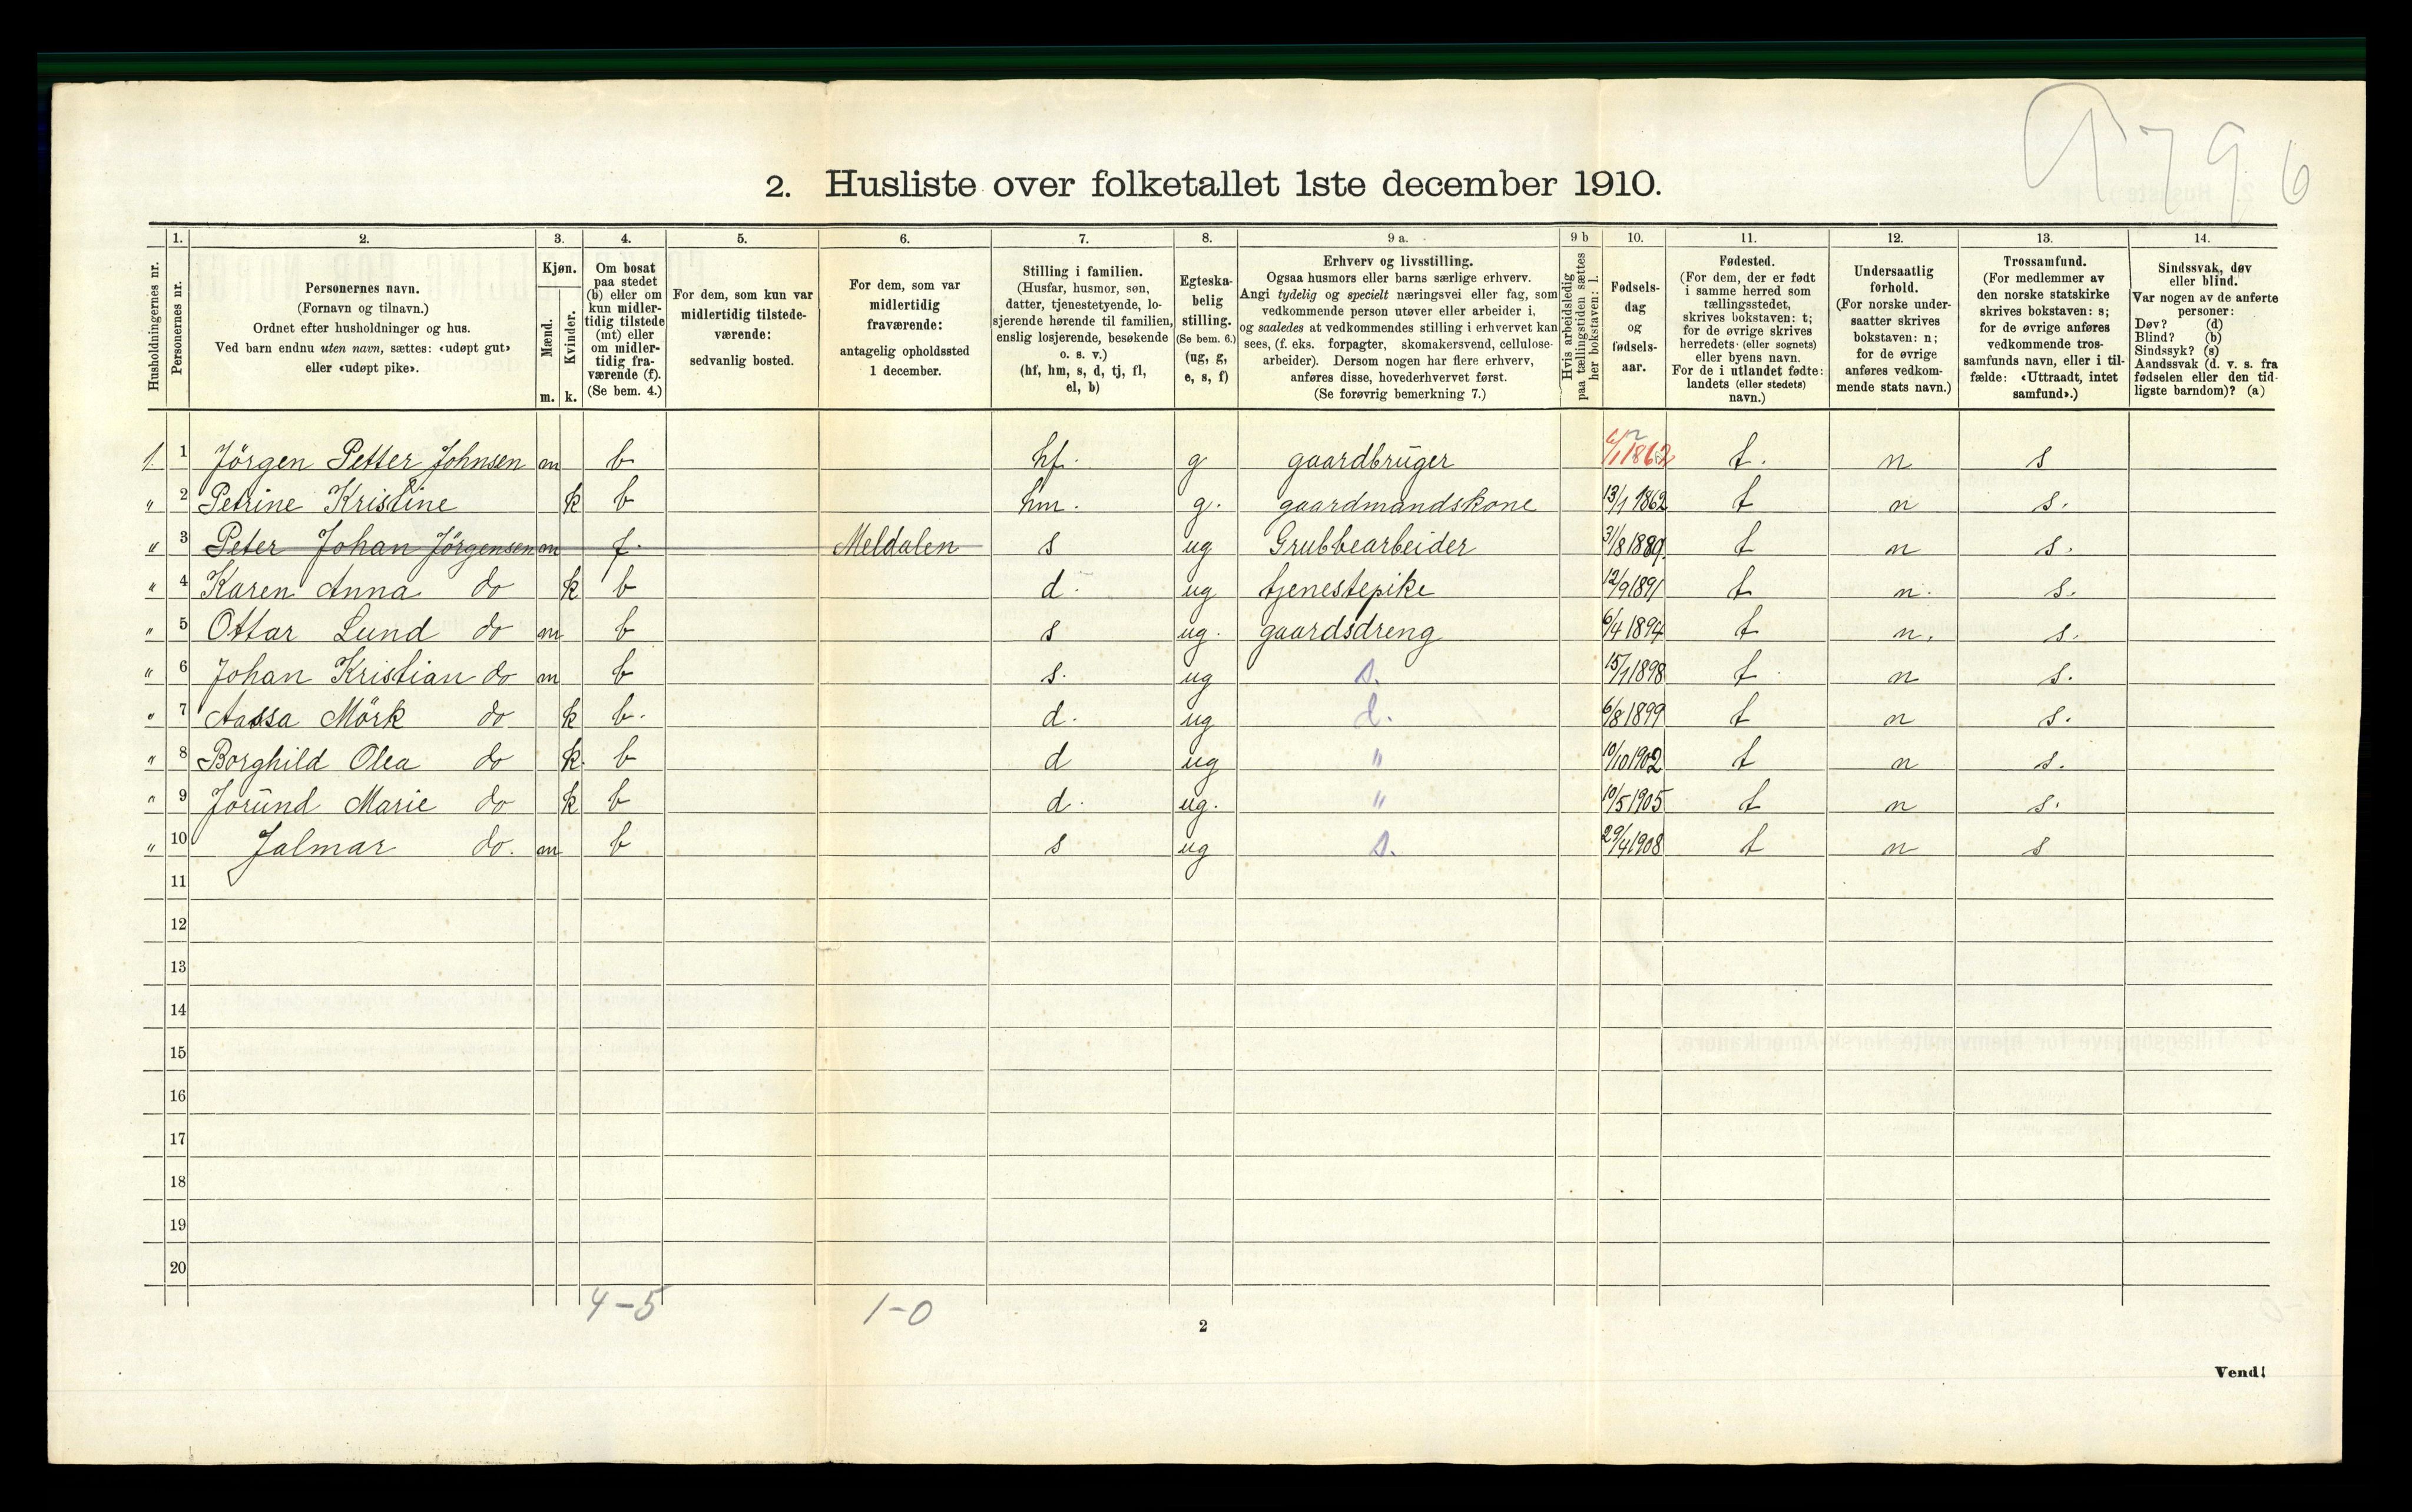 796
2. Husliste over folketallet 1ste december 1910.
Husholdningernes nr.
1.
Personernes nr.
2.
Personernes navn.
(Fornavn og tilnavn.)
Ordnet efter husholdninger og hus.
Ved barn endnu uten navn, sættes: «udøpt gut»
eller «udøpt pike».
3.
Kjøn.
Mænd.
Kvinder.
m.
k.
4.
Om bosat
paa stedet
(b) eller om
kun midler-
tidig tilstede
(mt) eller
om midler-
tidig fra-
værende (f).
(Se bem. 4.)
5.
For dem, som kun var
midlertidig tilstede-
værende:
sedvanlig bosted.
6.
For dem, som var
midlertidig
fraværende:
antagelig opholdssted
1 december.
7.
Stilling i familien.
(Husfar, husmor, søn,
datter, tjenestetyende, lo-
sjerende hørende til familien,
enslig losjerende, besøkende
o. s. v.)
(hf, hm, s, d, tj, fl,
el, b)
8.
Egteska-
belig
stilling.
(Se bem. 6.)
(ug, g,
e, s, f)
9 a.
Erhverv og livsstilling.
Ogsaa husmors eller barns særlige erhverv.
Angi tydelig og specielt næringsvei eller fag, som
vedkommende person utøver eller arbeider i,
og saaledes at vedkommendes stilling i erhvervet kan
sees, (f. eks. forpagter, skomakersvend, cellulose-
arbeider). Dersom nogen har flere erhverv,
anføres disse, hovederhvervet først.
(Se forøvrig bemerkning 7.)
9 b
Hvis arbeidsledig
paa tællingstiden sættes
her bokstaven: l.
10.
Fødsels-
dag
og
fødsels-
aar.
11.
Fødested.
(For dem, der er født
i samme herred som
tællingsstedet,
skrives bokstaven: t;
for de øvrige skrives
herredets (eller sognets)
eller byens navn.
For de i utlandet fødte:
landets (eller stedets)
navn.)
12.
Undersaatlig
forhold.
(For norske under-
saatter skrives
bokstaven: n;
for de øvrige
anføres vedkom-
mende stats navn.)
13.
Trossamfund.
(For medlemmer av
den norske statskirke
skrives bokstaven: s;
for de øvrige anføres
vedkommende tros-
samfunds navn, eller i til-
fælde: «Uttraadt, intet
samfund».)
14.
Sindssvak, døv
eller blind.
Var nogen av de anførte
personer:
Døv? (d)
Blind? (b)
Sindssyk? (s)
Aandssvak (d. v. s. fra
fødselen eller den tid-
ligste barndom)? (a)
1. 1 Jörgen Petter Johnsen m b hf. g gaardbruger 1862 t. n s
" 2 Petrine Kristine k b hm. g. gaardmandskone 13/1 1862 t n s.
" 3 Peter Johan Jörgensen m f. Meldalen s ug Grubbearbeider 31/8 1889. t n s.
" 4 Karen Anna do k b d. ug tjenestepike 12/9 1891 t n. s.
" 5 Ottar Lund do m b s ug. gaardsdreng 6/4 1894 t n. s.
" 6 Johan Kristian do m b s. ug s. 15/1 1898 t n s.
" 7 Aassa Mörk do k b. d. ug d. 6/8 1899 t n s.
" 8 Borghild Olea do k. b d ug " 10/10 1902 t n s.
" 9 Joründ Marie do k b d. ug. " 10/5 1905 t n s.
" 10 Jalmar do. m b s ug s. 29/4 1908 t n s
11
12
13
14
15
16
17
18
19
20
4-5 1-0
2
Vend!